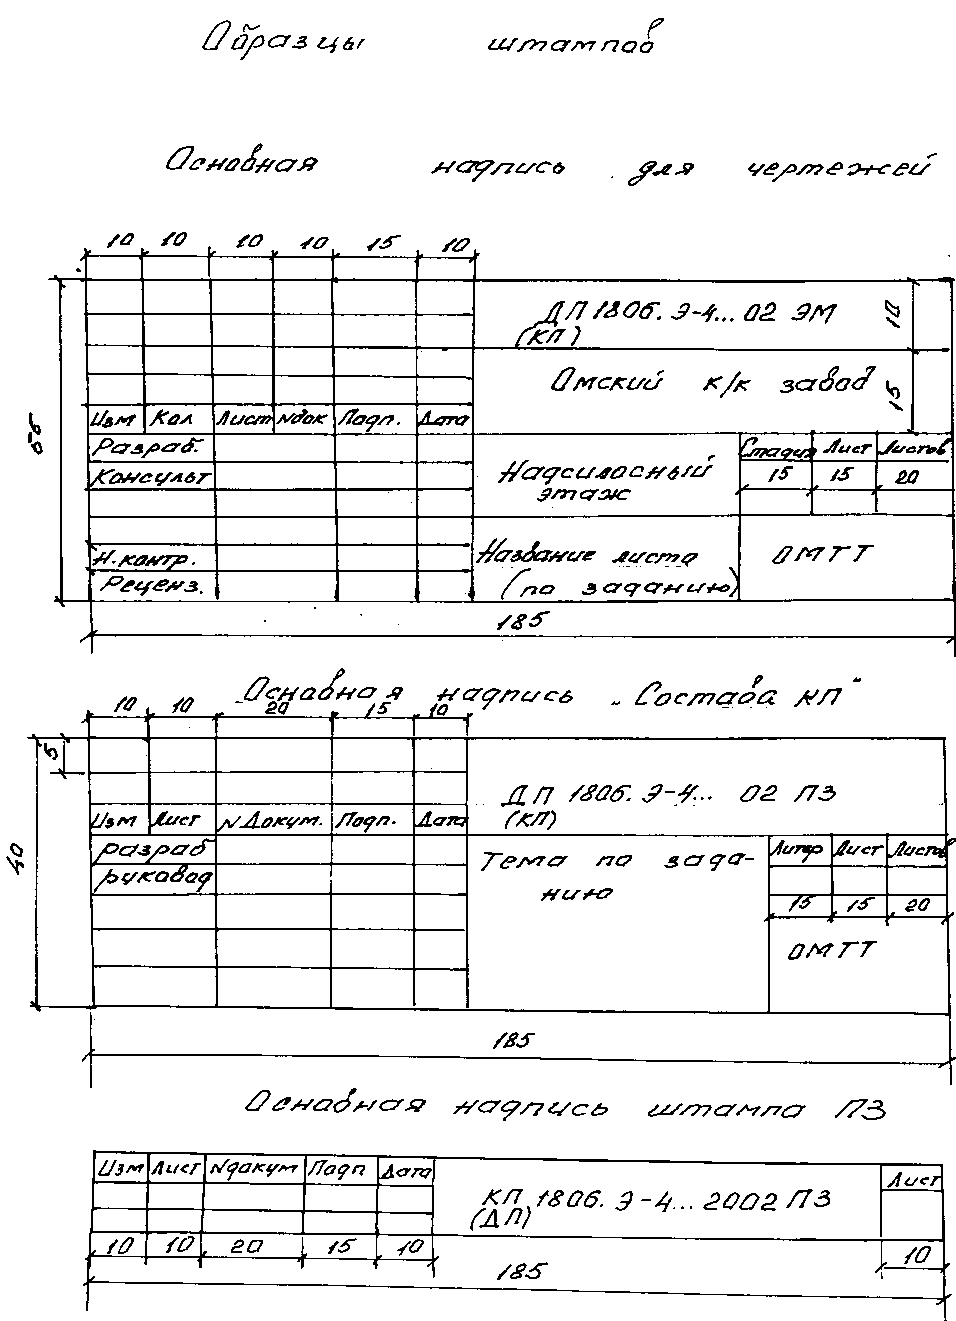 Образцы штампов
Основная надпись для чертежей
10 10 10 10 15 10
ДП 1806. Э-4... 02 ЭМ
(КП)
10
Омский к/к завод
15
55
Изм Кол Лист Nдок Подп. Дата
Разраб.
Консульт
Надсилосный
этаж
Стадия Лист Листов
15 15 20
Н.контр.
Реценз.
Название листа
(по заданию)
ОМТТ
185
Основная надпись „Состава КП"
10 10 20 15 10
5
40
ДП 1806. Э-4... 02 ПЗ
(КП)
Изм Лист N Докум. Подп. Дата
разраб
руковод
Тема по зада-
нию
Литер Лист Листов
15 15 20
ОМТТ
185
Основная надпись штампа ПЗ
Изм Лист Nдокум Подп Дата
КП 1806. Э-4... 2002 ПЗ
(ДП)
Лист
10 10 20 15 10
10
185